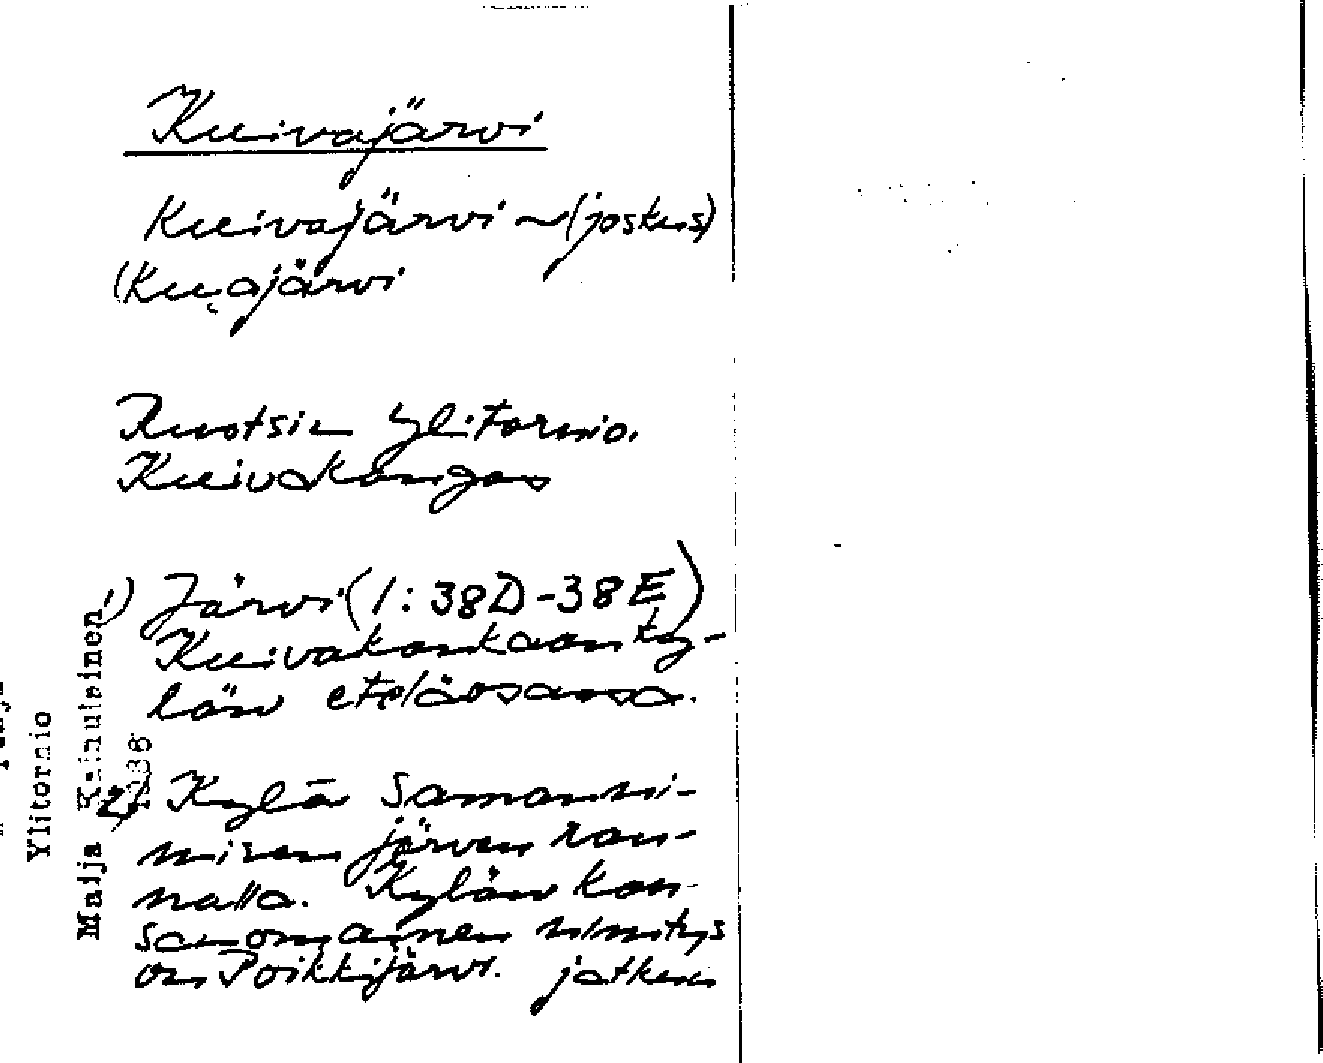 Kuivajärvi
Kuivajärvi ~ (joskus)
(Kui̯ajärvi
Ruotsin Ylitornio.
Kuivakangas
1) Järvi (1: 38D-38E)
Kuivakankaan ky-
län eteläosassa.
2) Kylä samanni-
misen järven ran-
nalla. Kylän kan-
sanomainen nimitys
on Poikkijärvi. jatkuu
Ylitornio
Maija Kainulainen